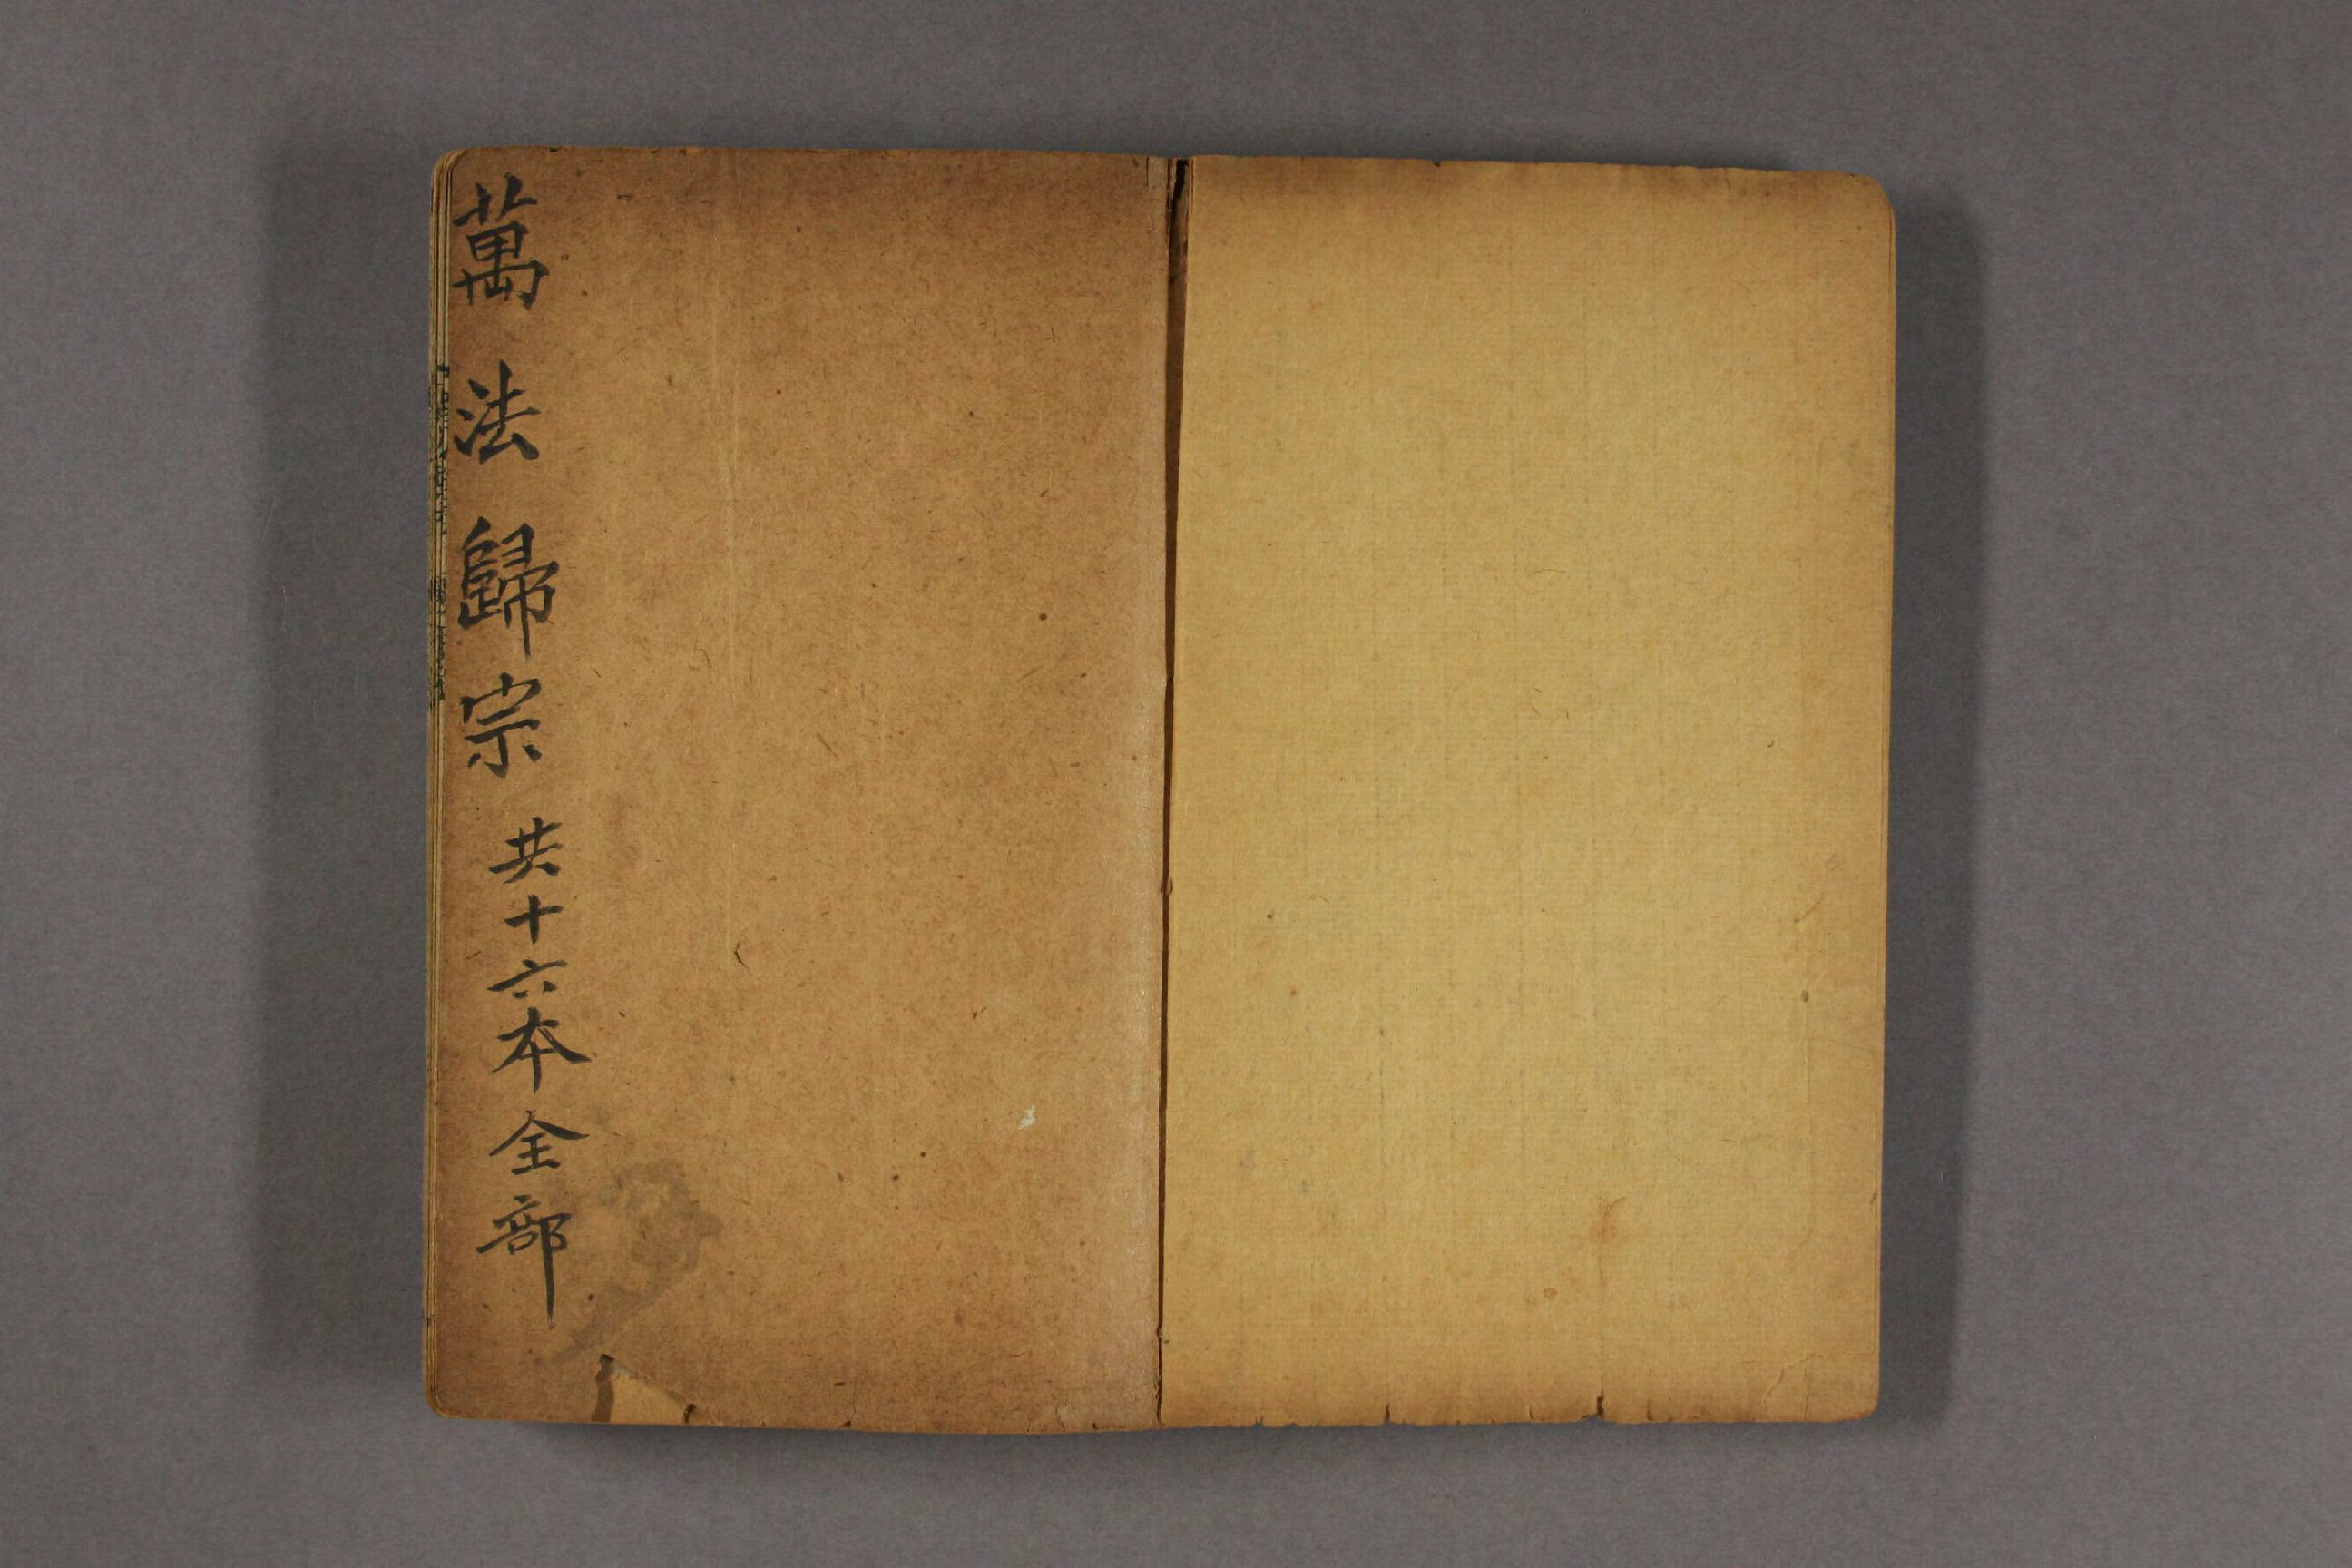 萬法歸宗共十六本全部